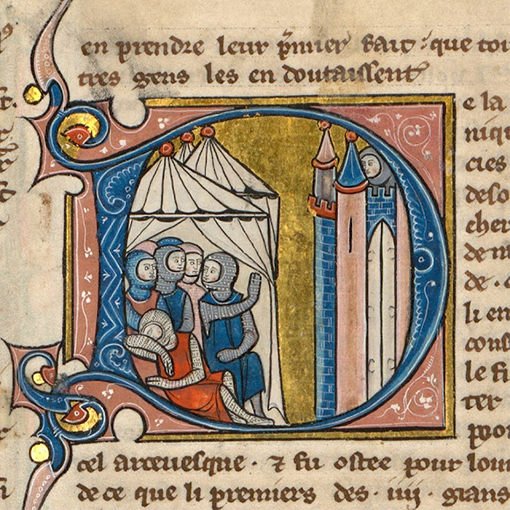 en prendre leur p̃mier fait : que tou
tres gens les en doutaissent
e la
niqu
cies
deso
cher
de
de .
li en
cons
le fi
ter
cel arceuesque . ⁊ fu ostee pour
de ce que li premiers des . iiij . grans